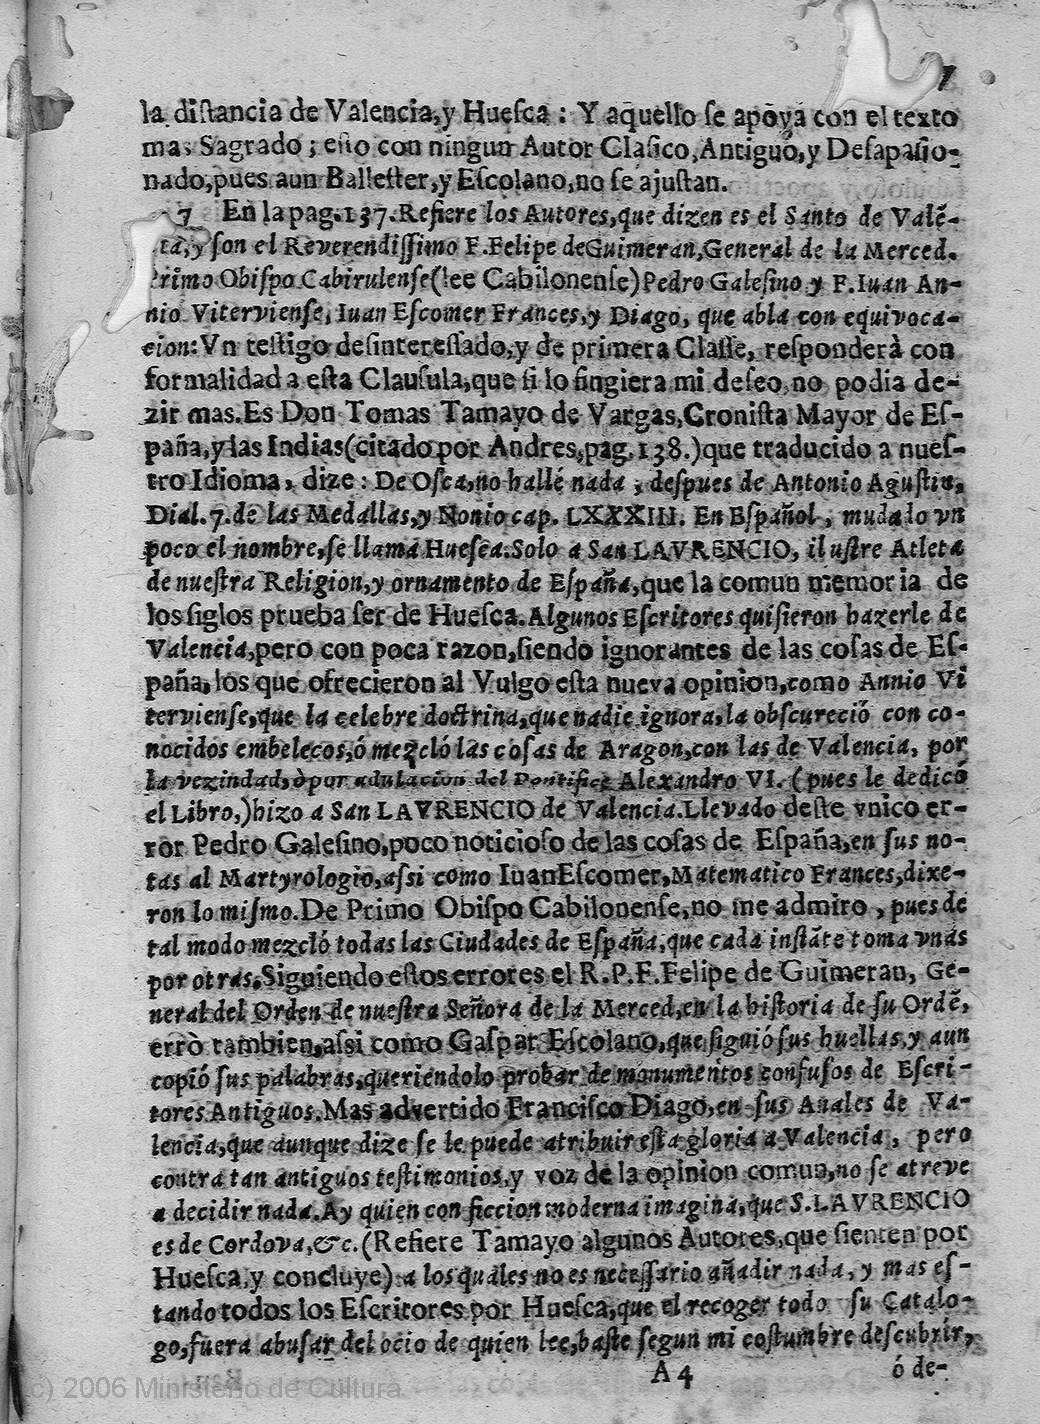 7
la distancia de Valencia,y Huesca : Y aquello se apoya con el texto
mas Sagrado ; esto con ningun Autor Clasico,Antiguo,y Desapasio-
nado,pues aun Ballester,y Escolano,no se ajustan.
7 En la pag.137.Refiere los Autores,que dizen es el Santo de Valẽ-
cia,y son el Reverendissimo F.Felipe deGuimeran,General de la Merced.
Primo Obispo Cabirulense(lee Cabilonense)Pedro Galesino y F.Iuan An-
nio Viterviense, Iuan Escomer Frances,y Diago, que abla con equivoca-
cion:Vn testigo desinteressado,y de primera Classe, responderà con
formalidad a esta Clausula,que si lo fingiera mi deseo,no podia de-
zir mas.Es Don Tomas Tamayo de Vargas,Cronista Mayor de Es-
paña,y las Indias(citado por Andres,pag.138.)que traducido a nues-
tro Idioma, dize: De Osca,no hallé nada , despues de Antonio Agustin,
Dial.7.de las Medallas,y Nonio cap. LXXXIII. En Español , mudado vn
poco el nombre,se llama Huesca.Solo a San LAVRENCIO, ilustre Atleta
de nuestra Religion,y ornamento de España,que la comun memoria de
los siglos prueba ser de Huesca.Algunos Escritores quisieron hazerle de
Valencia,pero con poca razon,siendo ignorantes de las cosas de Es-
paña,los que ofrecieron al Vulgo esta nueva opinion,como Annio Vi
terviense,que la celebre doctrina,que nadie ignora,la obscureció con co-
nocidos embelecos,ó mezcló las cosas de Aragon,con las de Valencia, por
la vezindad,òpor adulacion del Pontifice Alexandro VI. (pues le dedicó
el Libro,)hizo a San LAVRENCIO de Valencia.Llevado deste vnico er-
ror Pedro Galesino,poco noticioso de las cosas de España,en sus no-
tas al Martyrologio,assi como IuanEscomer,Matematico Frances,dixe-
ron lo mismo.De Primo Obispo Cabilonense,no me admiro , pues de
tal modo mezcló todas las Ciudades de España,que cada instãte toma vnas
por otras.Siguiendo estos errores el R.P.F.Felipe de Guimeran, Ge-
neral del Orden de nuestra Señora de la Merced,en la historia de su Ordẽ,
errò tambien,assi como Gaspar Escolano,que siguió sus huellas,y aun
copió sus palabras,queriendolo probar de monumentos confusos de Escri-
tores Antiguos.Mas advertido Francisco Diago,en sus Anales de Va-
lencia,que aunque dize se le puede atribuir esta gloria a Valencia , pero
contra tan antiguos testimonios,y voz de la opinion comun,no se atreve
a decidir nada.Ay quien con ficcion moderna imagina,que S.LAVRENCIO
es de Cordova,&c.(Refiere Tamayo algunos Autores,que sienten por
Huesca,y concluye) a los quales no es necessario añadir nada, y mas es-
tando todos los Escritores por Huesca,que el recoger todo su Catalo-
go,fuera abusar del ocio de quien lee,baste segun mi costumbre descubrir,
A 4 ó de-
(c) 2006 Ministerio de Cultura